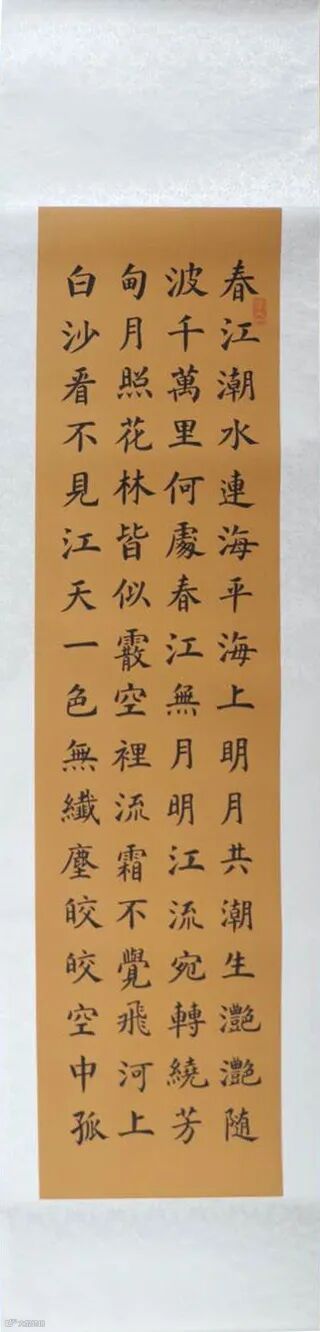 春江潮水連海平海上明月共潮生灔灔随
波千萬里何處春江無月明江流宛轉繞芳
甸月照花林皆似霰空裡流霜不覺飛河上
白沙看不見江天一色無纖塵皎皎空中孤